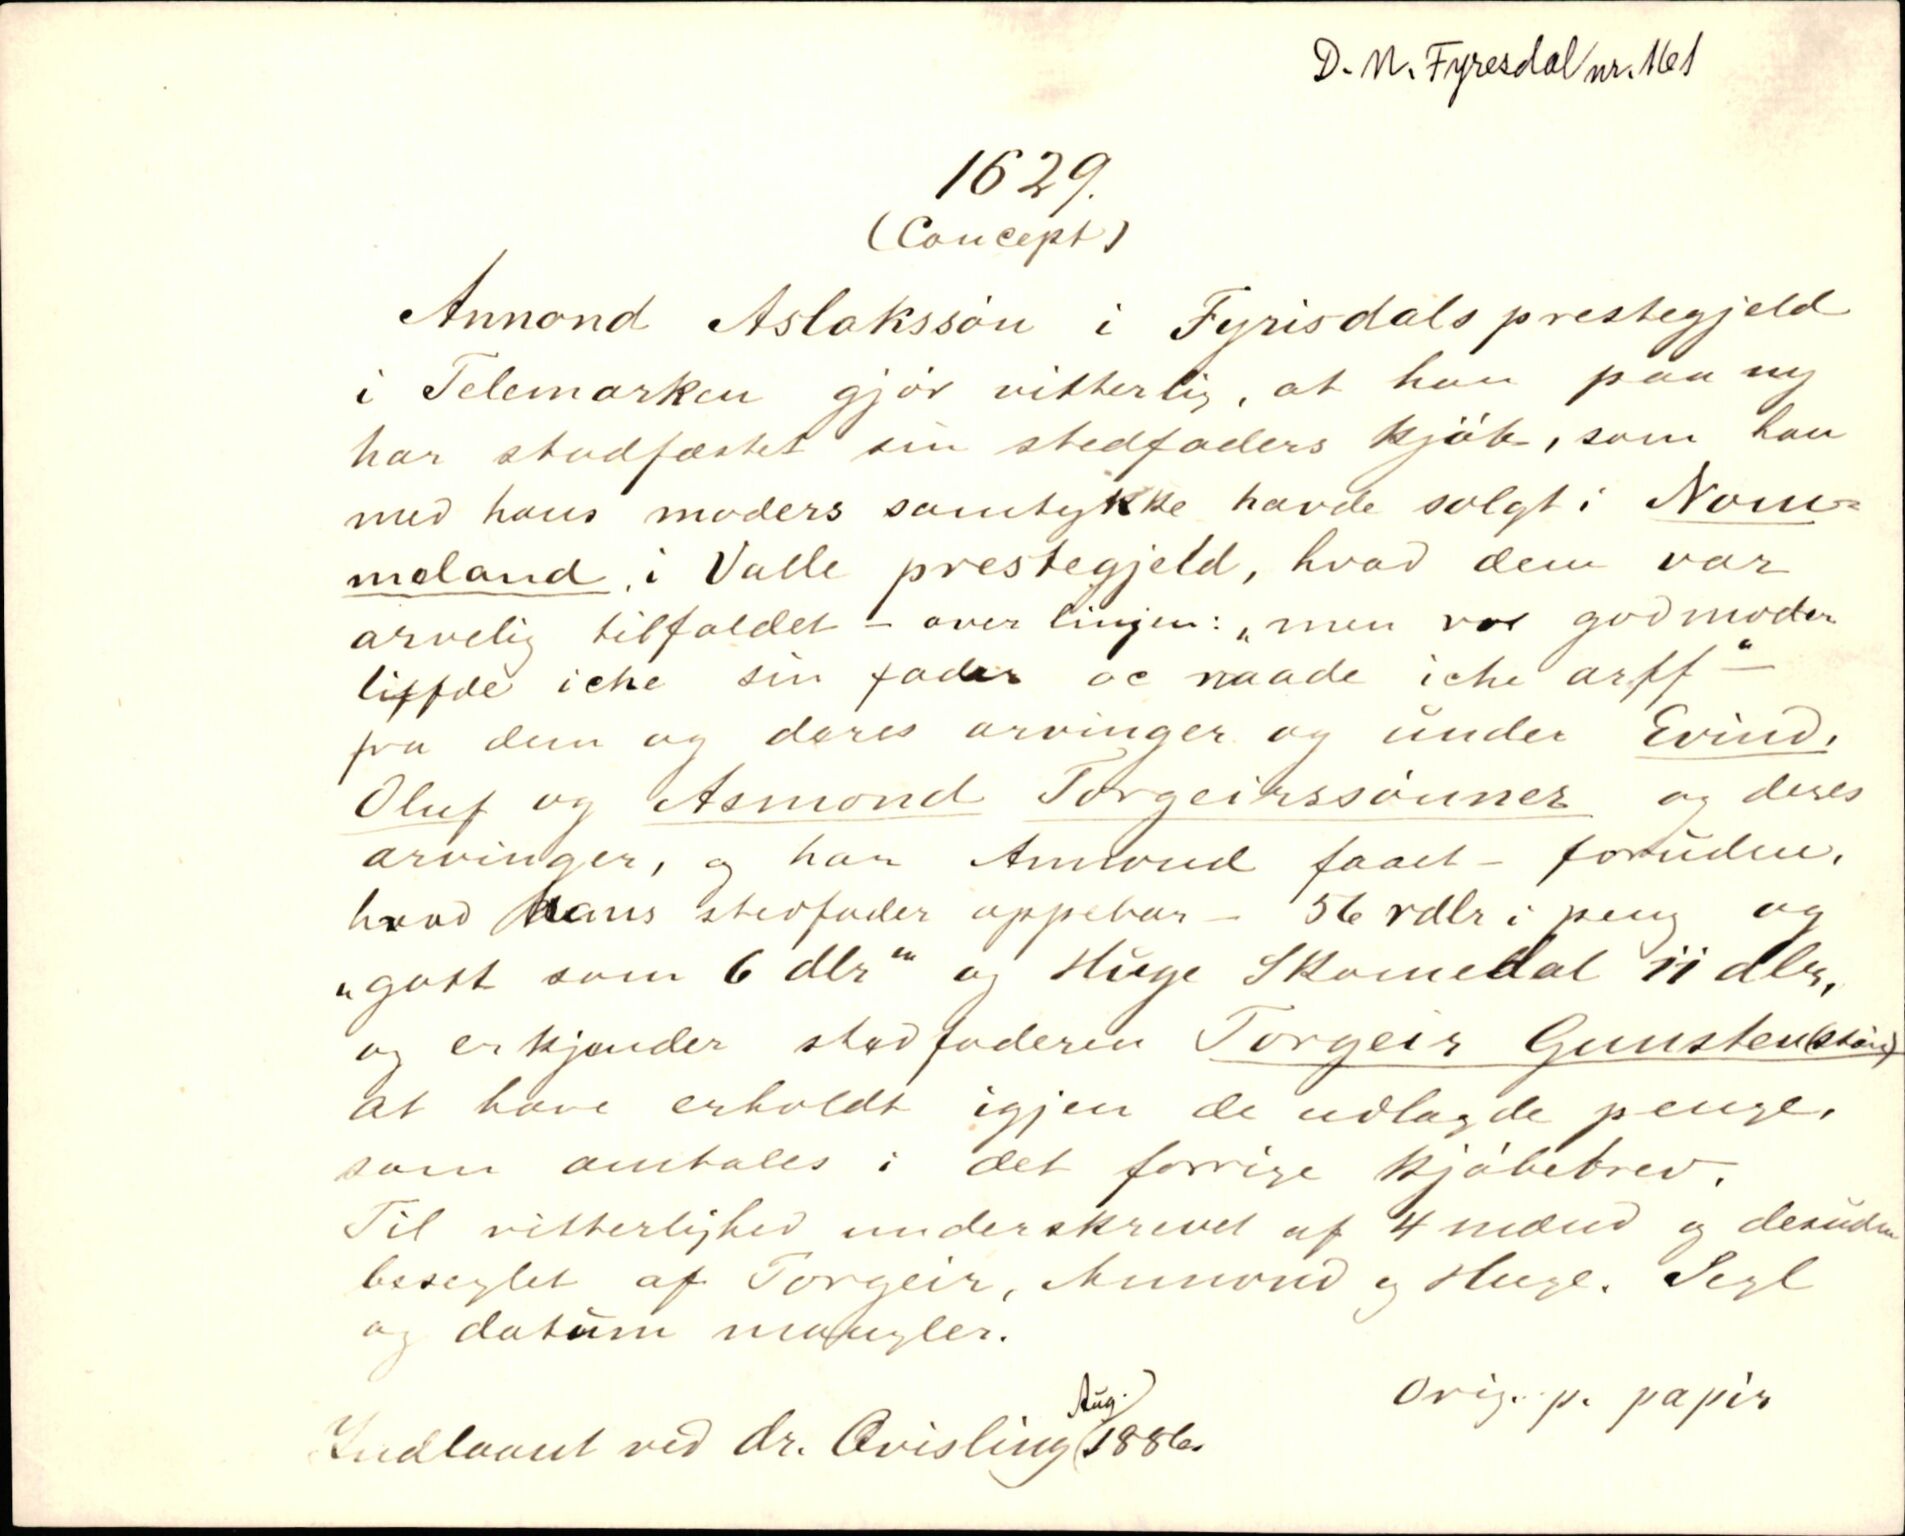 D. N. Fyresdal nr. 161
1629.
(Concept)
Anmond Aslakssøn i Fyrisdals prestegjeld
i Telemarken gjør vitterlig, at han paa ny
har stadfæstet sin stedfaders kjøb, som han
med hans moders samtykke havde solgt i Nom=
meland, i Valle prestegjeld, hvad dem var
arvelig tilfaldet – over linjen: „men vor godmoder
liffde iche sin fader oc naade iche arff" –
fra dem og deres arvinger og under Evind,
Oluf og Asmond Torgeirssønner og deres
arvinger, og har Anmond faaet – foruden,
hvad hans stedfader oppebar – 56 rdlr i peng og
„gott som 6 dlr" og Huge Skomedal ii dlr,
og erkjender stedfaderen Torgeir Gunsten(ssøn)
at have erholdt igjen de udlagde penge,
som omtales i det forrige kjøbebrev.
Til vitterlighed underskrevet af 4 mænd og desuden
beseglet af Torgeir, Anmond og Huge. Segl
og datum mangler.
Orig. p. papir
Indlaant ved dr. Qvisling Aug. 1886.